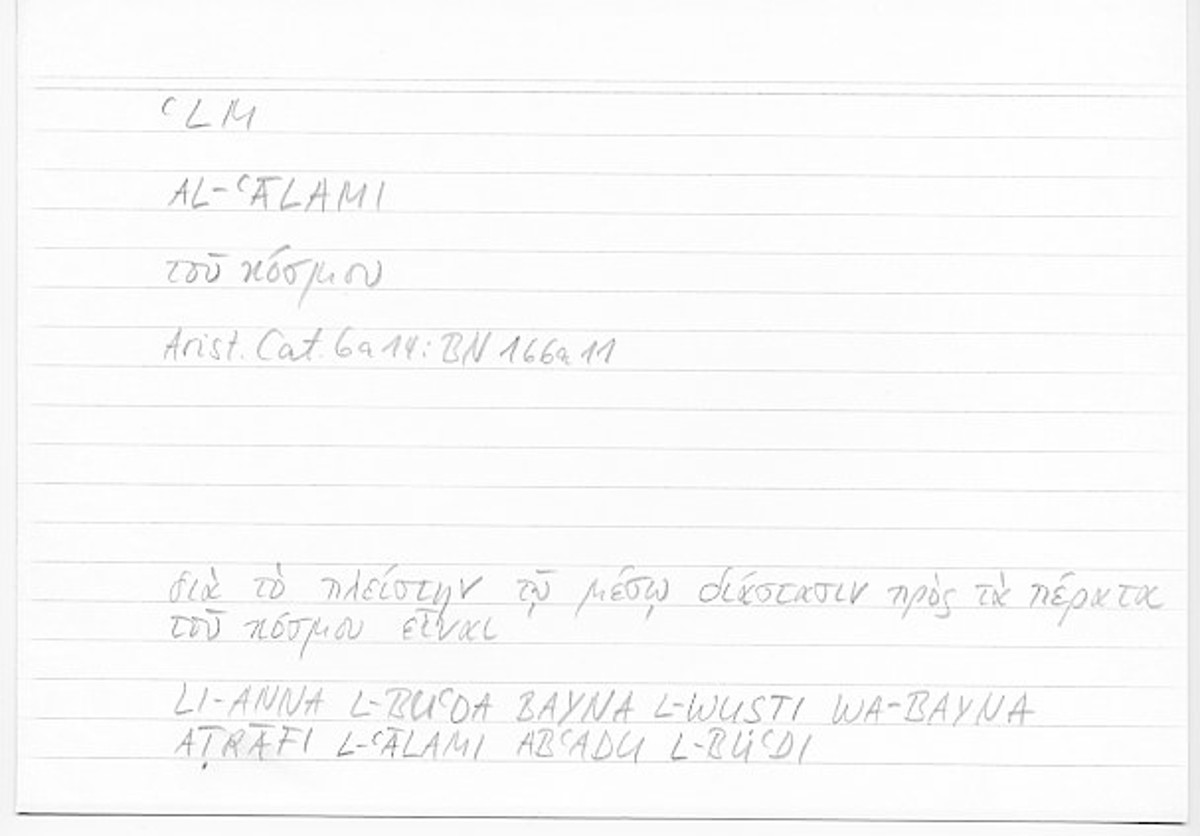 ʿLM
AL-ʿĀLAMI
τοῦ κόσμου
Arist. Cat. 6a14: BN 166a11
διὰ τὸ πλείστην τῷ μέσῳ διάστασιν πρὸς τὰ πέρατα
τοῦ κόσμου εἶναι
LI-ANNA L-BUʿDA BAYNA L-WUSTI WA-BAYNA
AṬRĀFI L-ʿĀLAMI ABʿADU L-BUʿDI